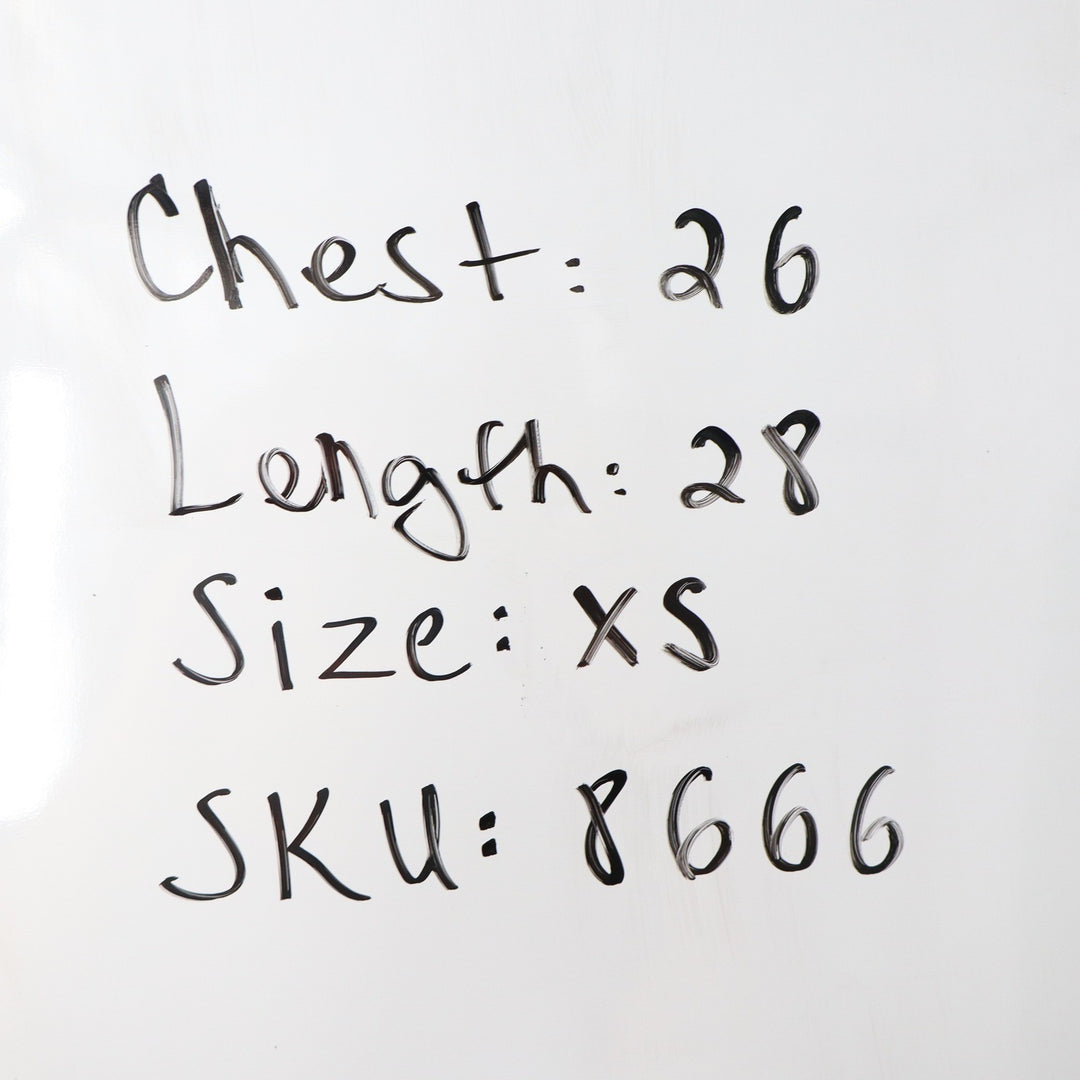 Chest: 26
Length: 28
Size: XS
SKU: 8666